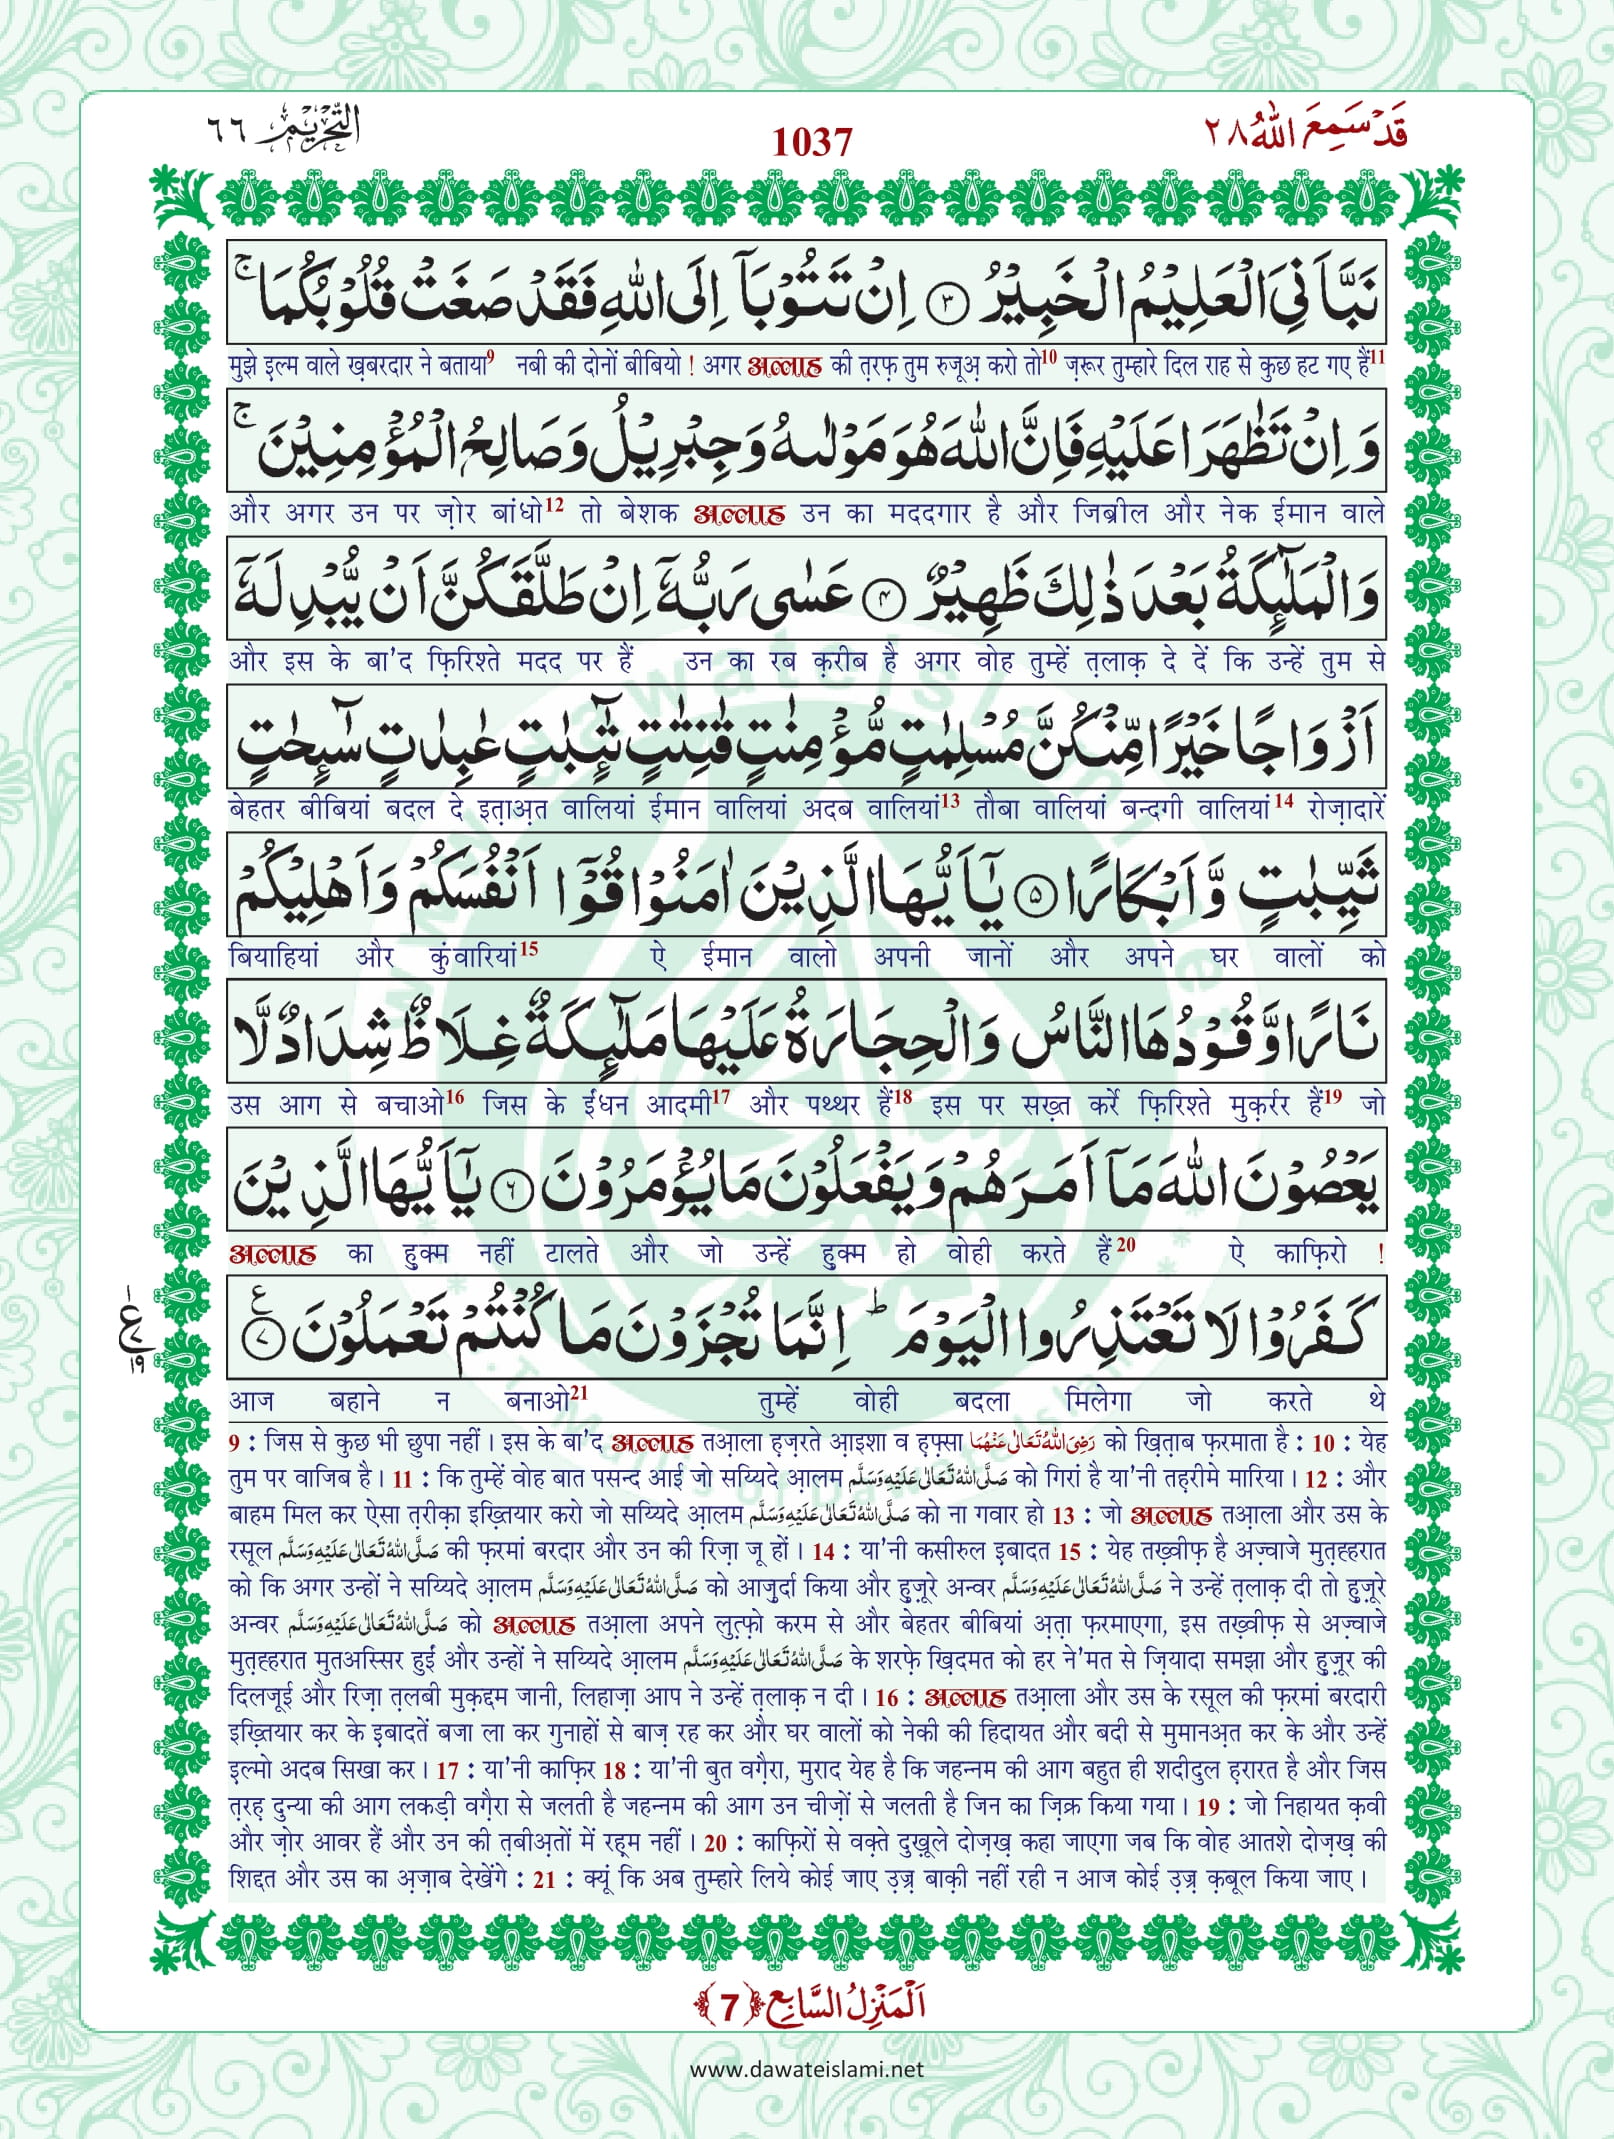 التحريم ٦٦
1037
قَدْ سَمِعَ اللّٰهُ ٢٨
نَبَّاَنِیَ الْعَلِیْمُ الْخَبِیْرُ ﴿۳﴾ اِنْ تَتُوْبَاۤ اِلَی اللّٰهِ فَقَدْ صَغَتْ قُلُوْبُكُمَا ۚ
मुझे इल्म वाले ख़बरदार ने बताया9 नबी की दोनों बीबियो ! अगर अल्लाह की त़रफ़ तुम रुजूअ़ करो तो10 ज़रूर तुम्हारे दिल राह से कुछ हट गए हैं11
وَ اِنْ تَظٰهَرَا عَلَیْهِ فَاِنَّ اللّٰهَ هُوَ مَوْلٰىهُ وَ جِبْرِیْلُ وَ صَالِحُ الْمُؤْمِنِیْنَ ۚ
और अगर उन पर ज़ोर बांधो12 तो बेशक अल्लाह उन का मददगार है और जिब्रील और नेक ईमान वाले
وَ الْمَلٰٓىِٕكَةُ بَعْدَ ذٰلِكَ ظَهِیْرٌ ﴿۴﴾ عَسٰى رَبُّهٗۤ اِنْ طَلَّقَكُنَّ اَنْ یُّبْدِلَهٗۤ
और इस के बा'द फ़िरिश्ते मदद पर हैं उन का रब क़रीब है अगर वोह तुम्हें त़लाक़ दे दें कि उन्हें तुम से
اَزْوَاجًا خَیْرًا مِّنْكُنَّ مُسْلِمٰتٍ مُّؤْمِنٰتٍ قٰنِتٰتٍ تٰٓىِٕبٰتٍ عٰبِدٰتٍ سٰٓىِٕحٰتٍ
बेहतर बीबियां बदल दे इत़ाअ़त वालियां ईमान वालियां अदब वालियां13 तौबा वालियां बन्दगी वालियां14 रोज़ादारें
ثَیِّبٰتٍ وَّ اَبْكَارًا ﴿۵﴾ یٰۤاَیُّهَا الَّذِیْنَ اٰمَنُوْا قُوْۤا اَنْفُسَكُمْ وَ اَهْلِیْكُمْ
बियाहियां और कुंवारियां15 ऐ ईमान वालो अपनी जानों और अपने घर वालों को
نَارًا وَّ قُوْدُهَا النَّاسُ وَ الْحِجَارَةُ عَلَیْهَا مَلٰٓىِٕكَةٌ غِلَاظٌ شِدَادٌ لَّا
उस आग से बचाओ16 जिस के ईंधन आदमी17 और पथ्थर हैं18 इस पर सख़्त कर्रे फ़िरिश्ते मुक़र्रर हैं19 जो
یَعْصُوْنَ اللّٰهَ مَاۤ اَمَرَهُمْ وَ یَفْعَلُوْنَ مَا یُؤْمَرُوْنَ ﴿۶﴾ یٰۤاَیُّهَا الَّذِیْنَ
अल्लाह का हुक्म नहीं टालते और जो उन्हें हुक्म हो वोही करते हैं20 ऐ काफ़िरो !
كَفَرُوْا لَا تَعْتَذِرُوا الْیَوْمَ ؕ اِنَّمَا تُجْزَوْنَ مَا كُنْتُمْ تَعْمَلُوْنَ ﴿۷﴾ ع
١ ع ١٩
आज बहाने न बनाओ21 तुम्हें वोही बदला मिलेगा जो करते थे
9 : जिस से कुछ भी छुपा नहीं । इस के बा'द अल्लाह तआ़ला ह़ज़रते आ़इशा व ह़फ़्सा رَضِیَ اللّٰهُ تَعَالٰی عَنْهُمَا को ख़ित़ाब फ़रमाता है : 10 : येह
तुम पर वाजिब है । 11 : कि तुम्हें वोह बात पसन्द आई जो सय्यिदे आ़लम صَلَّی اللّٰهُ تَعَالٰی عَلَیْهِ وَسَلَّم को गिरां है या'नी तह़रीमे मारिया । 12 : और
बाहम मिल कर ऐसा त़रीक़ा इख़्तियार करो जो सय्यिदे आ़लम صَلَّی اللّٰهُ تَعَالٰی عَلَیْهِ وَسَلَّم को ना गवार हो 13 : जो अल्लाह तआ़ला और उस के
रसूल صَلَّی اللّٰهُ تَعَالٰی عَلَیْهِ وَسَلَّم की फ़रमां बरदार और उन की रिज़ा जू हों । 14 : या'नी कसीरुल इबादत 15 : येह तख़्वीफ़ है अज़्वाजे मुत़ह्हरात
को कि अगर उन्हों ने सय्यिदे आ़लम صَلَّی اللّٰهُ تَعَالٰی عَلَیْهِ وَسَلَّم को आजुर्दा किया और हुज़ूरे अन्वर صَلَّی اللّٰهُ تَعَالٰی عَلَیْهِ وَسَلَّم ने उन्हें त़लाक़ दी तो हुज़ूरे
अन्वर صَلَّی اللّٰهُ تَعَالٰی عَلَیْهِ وَسَلَّم को अल्लाह तआ़ला अपने लुत्फ़ो करम से और बेहतर बीबियां अ़त़ा फ़रमाएगा, इस तख़्वीफ़ से अज़्वाजे
मुत़ह्हरात मुतअस्सिर हुईं और उन्हों ने सय्यिदे आ़लम صَلَّی اللّٰهُ تَعَالٰی عَلَیْهِ وَسَلَّم के शरफ़े ख़िदमत को हर ने'मत से ज़ियादा समझा और हुज़ूर की
दिलजूई और रिज़ा त़लबी मुक़द्दम जानी, लिहाज़ा आप ने उन्हें त़लाक़ न दी । 16 : अल्लाह तआ़ला और उस के रसूल की फ़रमां बरदारी
इख़्तियार कर के इबादतें बजा ला कर गुनाहों से बाज़ रह कर और घर वालों को नेकी की हिदायत और बदी से मुमानअ़त कर के और उन्हें
इल्मो अदब सिखा कर । 17 : या'नी काफ़िर 18 : या'नी बुत वग़ैरा, मुराद येह है कि जहन्नम की आग बहुत ही शदीदुल ह़रारत है और जिस
त़रह़ दुन्या की आग लकड़ी वग़ैरा से जलती है जहन्नम की आग उन चीज़ों से जलती है जिन का ज़िक्र किया गया । 19 : जो निहायत क़वी
और ज़ोर आवर हैं और उन की त़बीअ़तों में रह़्म नहीं । 20 : काफ़िरों से वक़्ते दुख़ूले दोज़ख़ कहा जाएगा जब कि वोह आतशे दोज़ख़ की
शिद्दत और उस का अ़ज़ाब देखेंगे : 21 : क्यूं कि अब तुम्हारे लिये कोई जाए उ़ज़्र बाक़ी नहीं रही न आज कोई उ़ज़्र क़बूल किया जाए ।
اَلْمَنْزِلُ السَّابِع ﴿7﴾
www.dawateislami.net